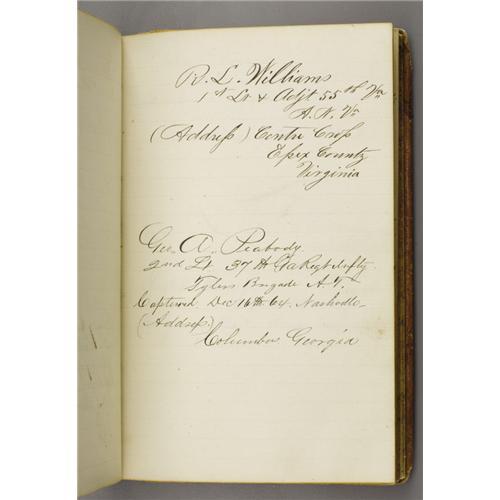 R. L. Williams
1st Lt & Adjt 55th Va
A. N. Va
(Address) Centre Cross
Essex County
Virginia
Geo. A. Peabody.
2nd Lt 37th Ga Regt Infty
Tylers Brigade A. T.
Captured Dec 16th 64. Nashville
(Address)
Columbus Georgia